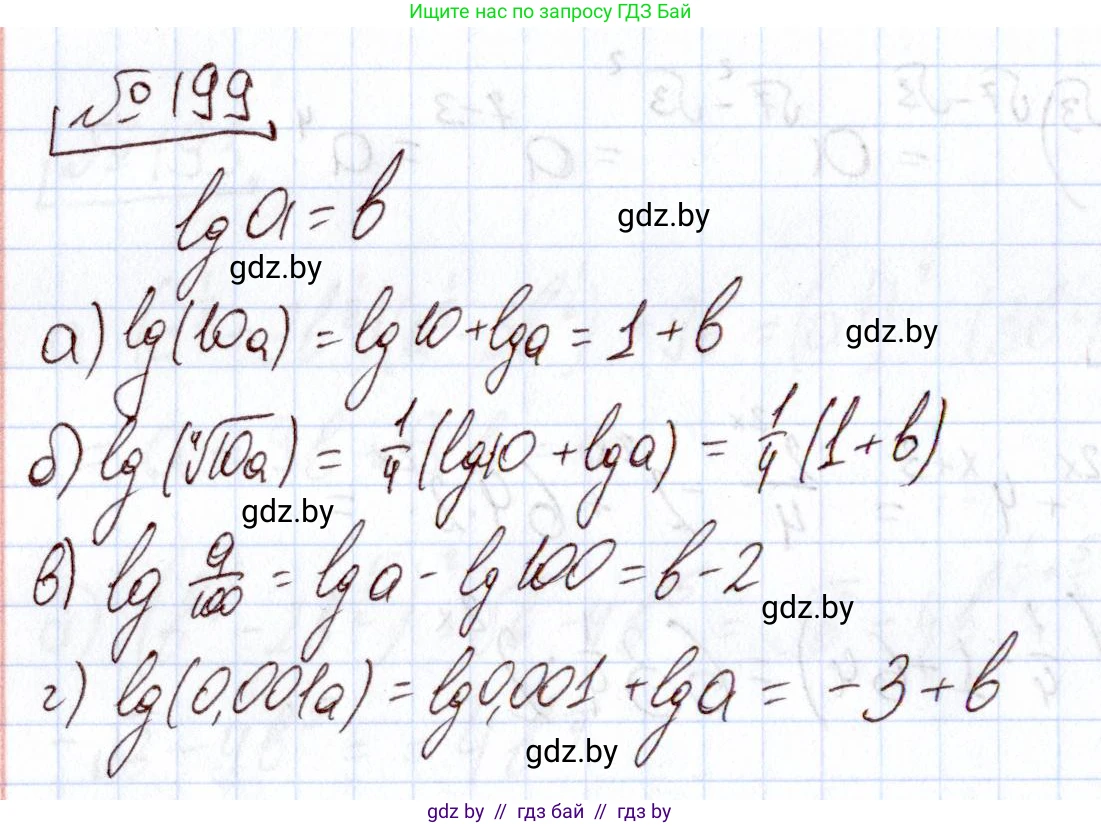 Ищите нас по запросу ГДЗ Бай
№ 199
lg a = b
gdz.by
gdz.by
а) lg(10a) = lg 10 + lg a = 1 + b
gdz.by
б) lg(⁴√10a) = 1/4 (lg 10 + lg a) = 1/4 (1 + b)
gdz.by
в) lg a/100 = lg a - lg 100 = b - 2
gdz.by
г) lg(0,001a) = lg 0,001 + lg a = -3 + b
gdz.by
gdz by // гдз бай // гдз by